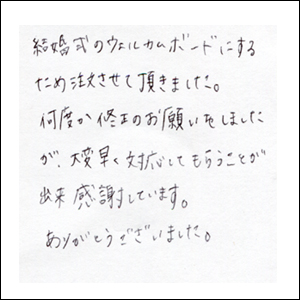 結婚式のウェルカムボードにする
ため注文させて頂きました。
何度か修正のお願いをしました
が、大変早く対応してもらうことが
出来感謝しています。
ありがとうございました。